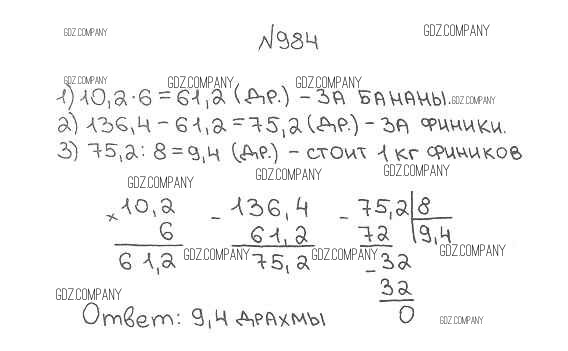 GDZ.COMPANY
GDZ.COMPANY
№984
GDZ.COMPANY
GDZ.COMPANY
GDZ.COMPANY
1) 10,2·6=61,2 (ДР.) - ЗА БАНАНЫ.
GDZ.COMPANY
2) 136,4-61,2=75,2 (ДР.) - ЗА ФИНИКИ.
3) 75,2:8=9,4 (ДР.) - СТОИТ 1 КГ ФИНИКОВ
GDZ.COMPANY
GDZ.COMPANY
GDZ.COMPANY
× 10,2 - 136,4 - 75,2 8
6 61,2 72 9,4
61,2 75,2 - 32
GDZ.COMPANY
GDZ.COMPANY
GDZ.COMPANY
32
GDZ.COMPANY
0
Ответ: 9,4 ДРАХМЫ
GDZ.COMPANY